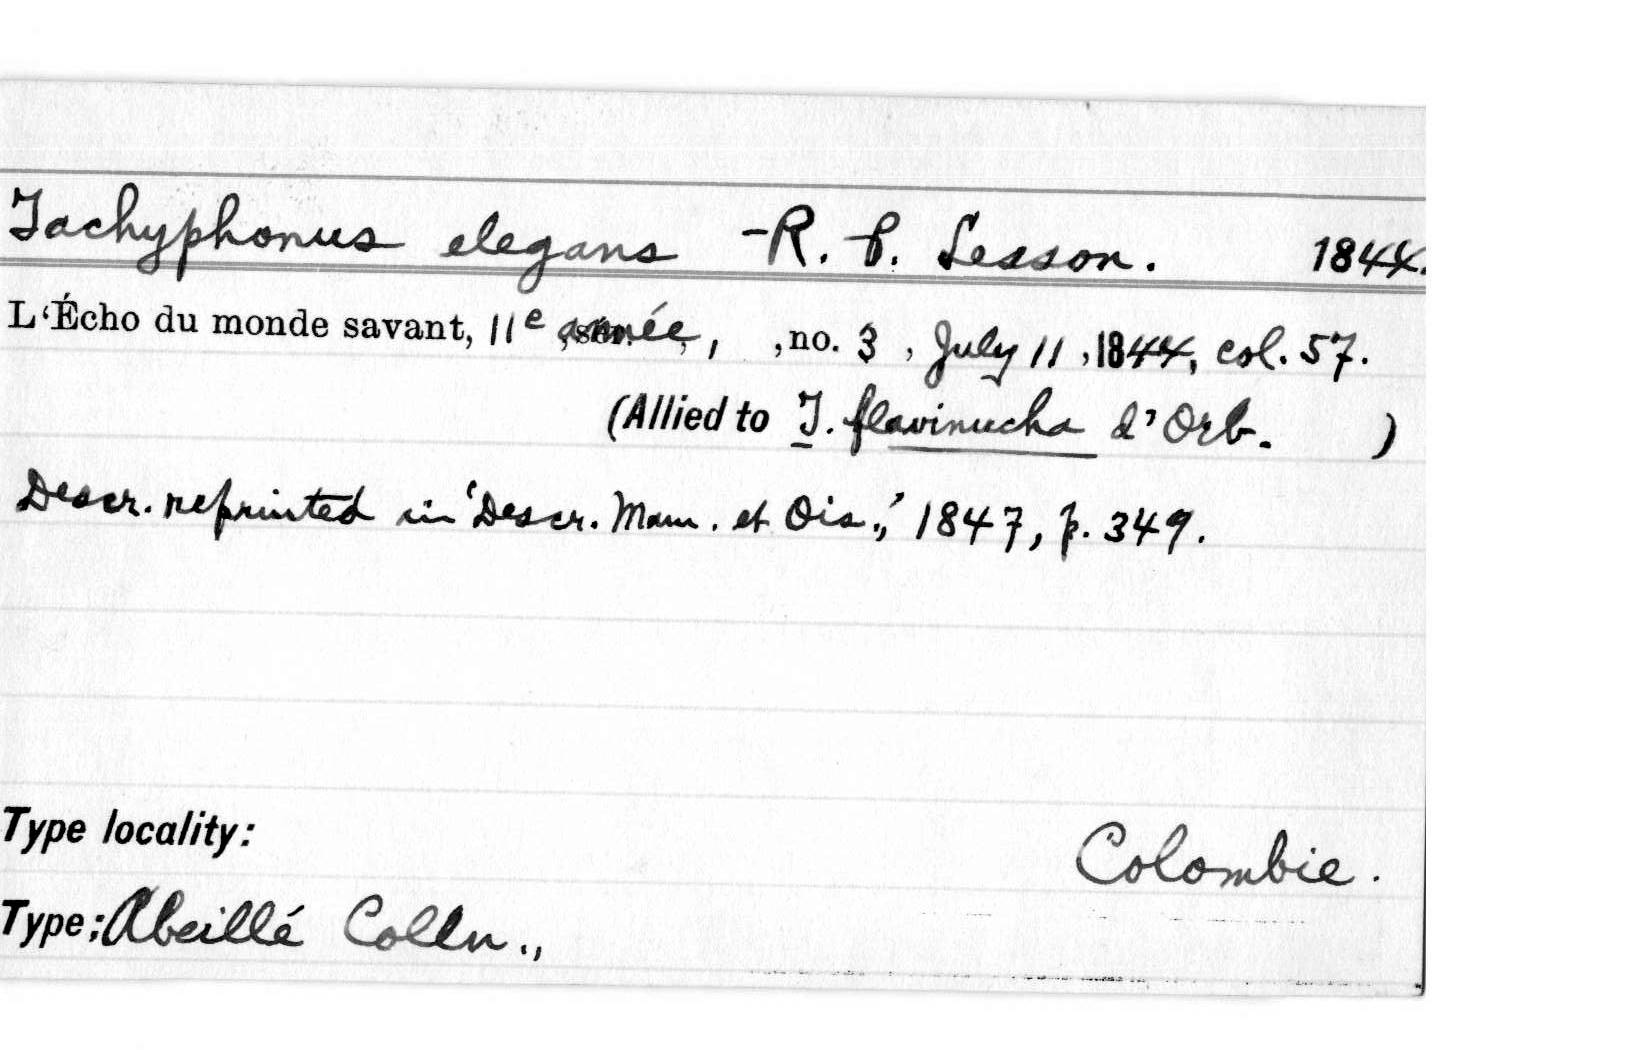 Tachyphonus elegans - R. P. Lesson. 1844.
L'Écho du monde savant, 11e année, , no. 3 , July 11 , 1844, col. 57.
(Allied to T. flavinucha d'Orb. )
Descr. reprinted in 'Descr. Mam. et Ois.,' 1847, p. 349.
Type locality: Colombie.
Type; Abeillé Colln.,